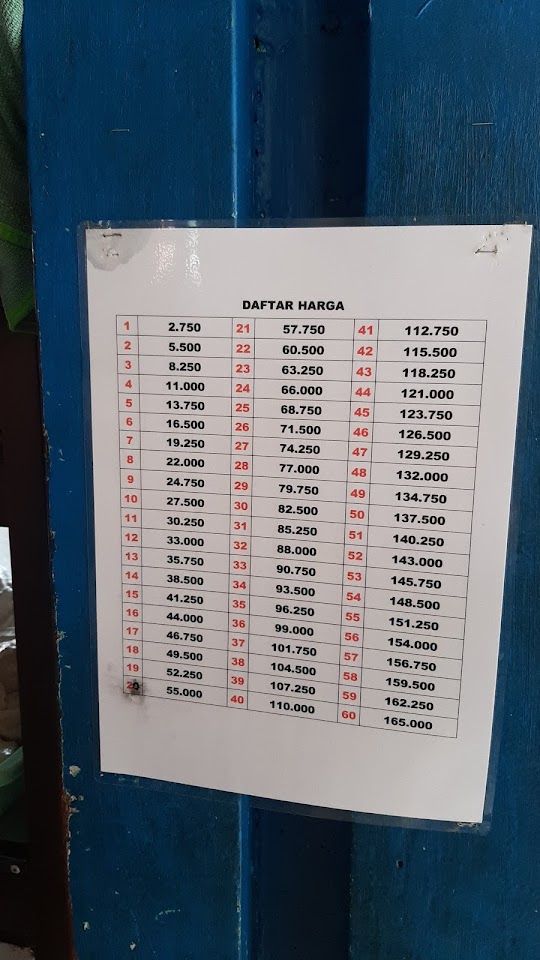 DAFTAR HARGA
1 2.750 21 57.750 41 112.750
2 5.500 22 60.500 42 115.500
3 8.250 23 63.250 43 118.250
4 11.000 24 66.000 44 121.000
5 13.750 25 68.750 45 123.750
6 16.500 26 71.500 46 126.500
7 19.250 27 74.250 47 129.250
8 22.000 28 77.000 48 132.000
9 24.750 29 79.750 49 134.750
10 27.500 30 82.500 50 137.500
11 30.250 31 85.250 51 140.250
12 33.000 32 88.000 52 143.000
13 35.750 33 90.750 53 145.750
14 38.500 34 93.500 54 148.500
15 41.250 35 96.250 55 151.250
16 44.000 36 99.000 56 154.000
17 46.750 37 101.750 57 156.750
18 49.500 38 104.500 58 159.500
19 52.250 39 107.250 59 162.250
20 55.000 40 110.000 60 165.000